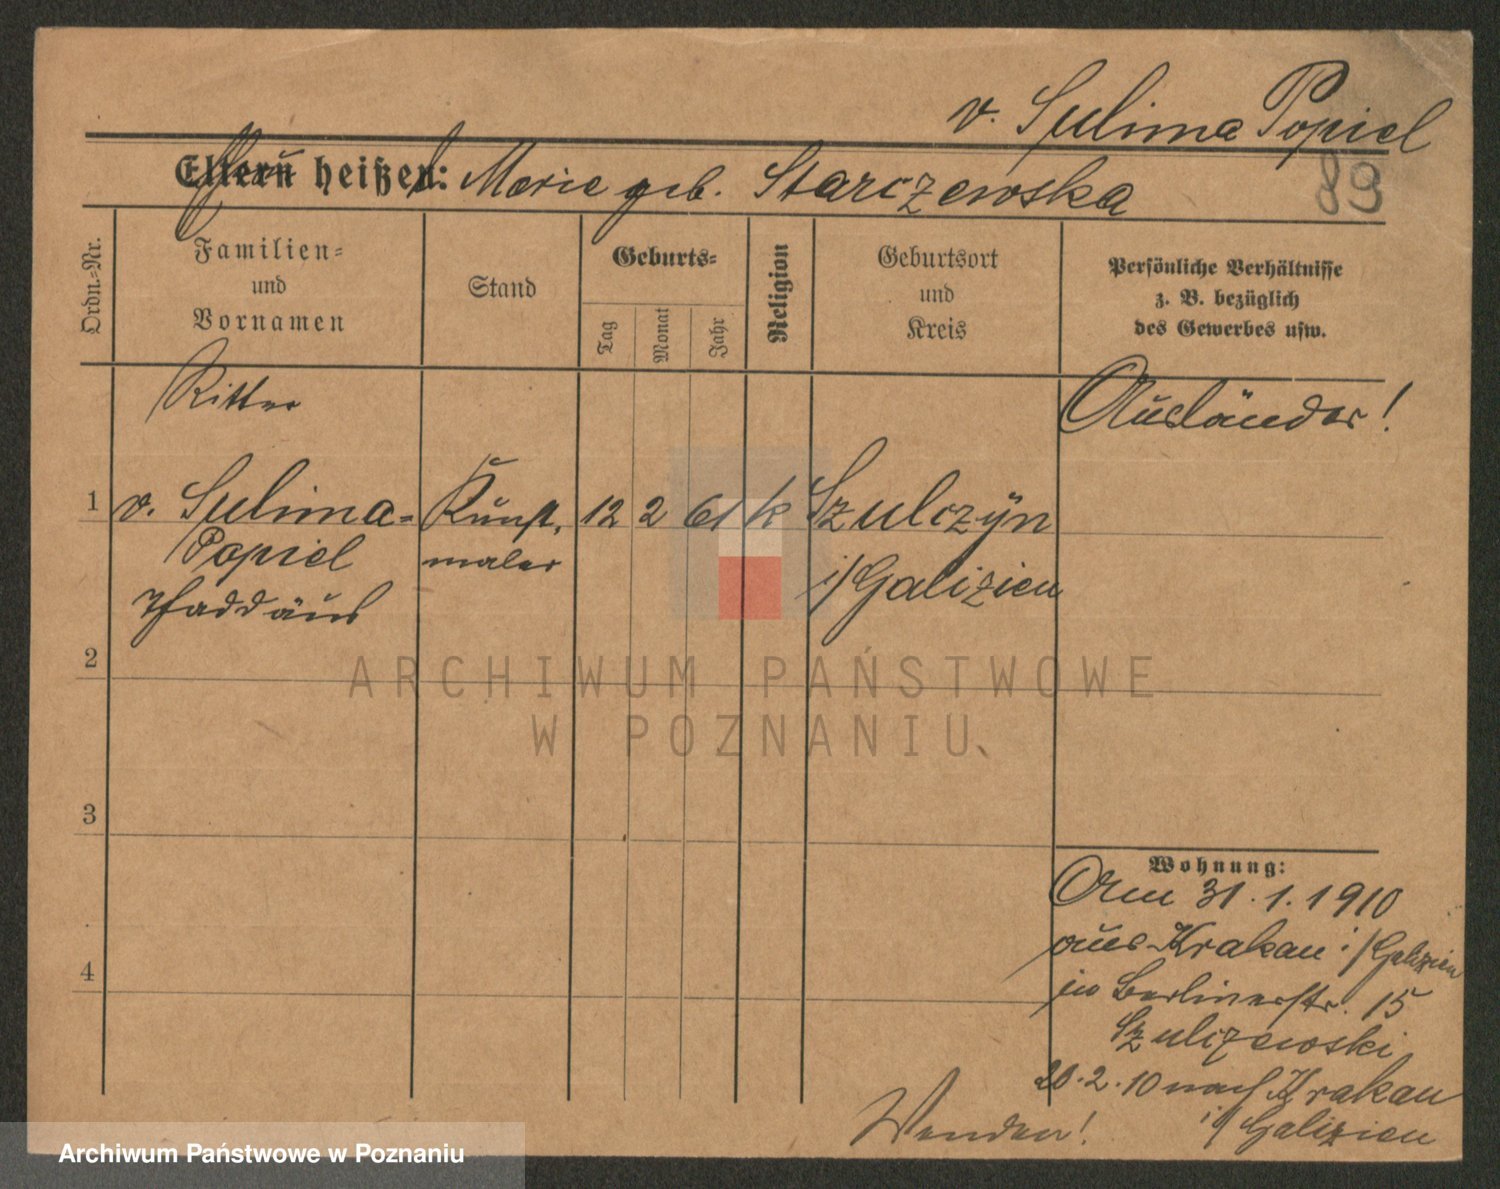 v. Sulima Popiel
Eltern heißen: Marie geb. Starczewska
89
Ordn.-Nr.
Familien-
und
Vornamen
Stand
Geburts-
Tag
Monat
Jahr
Religion
Geburtsort
und
Kreis
Persönliche Verhältnisse
z. B. bezüglich
des Gewerbes usw.
Ritter
Ausländer!
1 v. Sulima- Kunst- 12 2 61 k Szulczyn
Popiel maler i/Galizien
Thaddäus
2
ARCHIWUM PAŃSTWOWE
W POZNANIU
3
Wohnung:
Am 31.1.1910
aus Krakau i/Galizien
in Berlinerstr. 15
4
Szulczewski
20.2.10 nach Krakau
i/Galizien
Wenden!
Archiwum Państwowe w Poznaniu